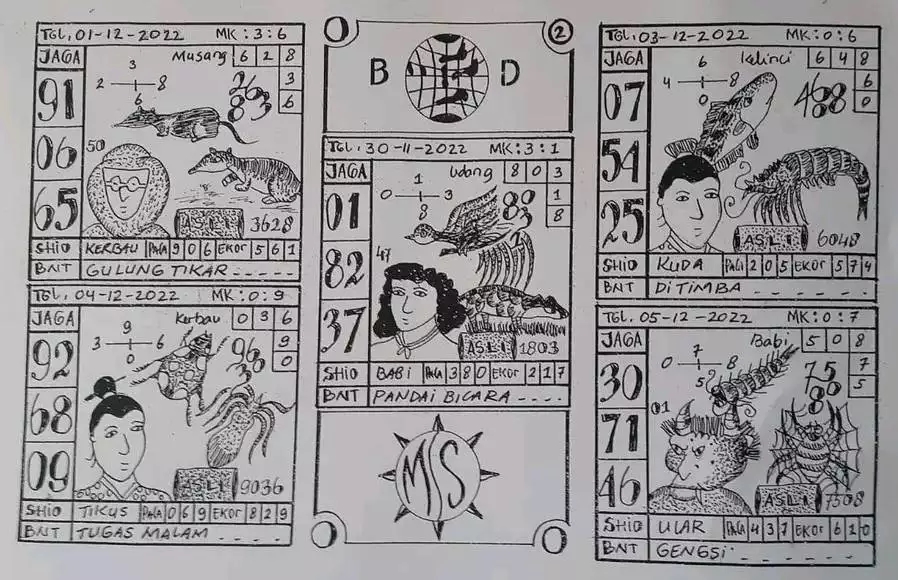 TGL, 01-12-2022 MK: 3:6
JAGA
Musang 6 2 8
3
6
3
2 8
6
83
91
06
65
50
ASLI 3628
SHIO KERBAU PALA 9 0 6 EKOR 5 6 1
BNT GULUNG TIKAR - - - - -
TGL, 04-12-2022 MK: 0:9
JAGA
Kerbau 0 3 6
9
0
9
3 6
0
96
30
92
68
09
ASLI 9036
SHIO TIKUS PALA 0 6 9 EKOR 8 2 9
BNT TUGAS MALAM - - - -
2
B D
TGL, 30-11-2022 MK: 3:1
JAGA
Udang 8 0 3
1
8
1
0 3
8
01
82
37
47
ASLI 1803
SHIO BABI PALA 3 8 0 EKOR 2 1 7
BNT PANDAI BICARA - - - -
MS
TGL, 03-12-2022 MK: 0:6
JAGA
Kelinci 6 4 8
6
0
6
4 8
0
468
07
54
25
ASLI 6048
SHIO KUDA PALA 2 0 5 EKOR 5 7 4
BNT DITIMBA - - - - - -
TGL, 05-12-2022 MK: 0:7
JAGA
Babi 5 0 8
7
5
7
0 8
5
75
30
71
46
01
ASLI 7508
SHIO ULAR PALA 4 3 7 EKOR 6 2 0
BNT GENGSI - - - - - -